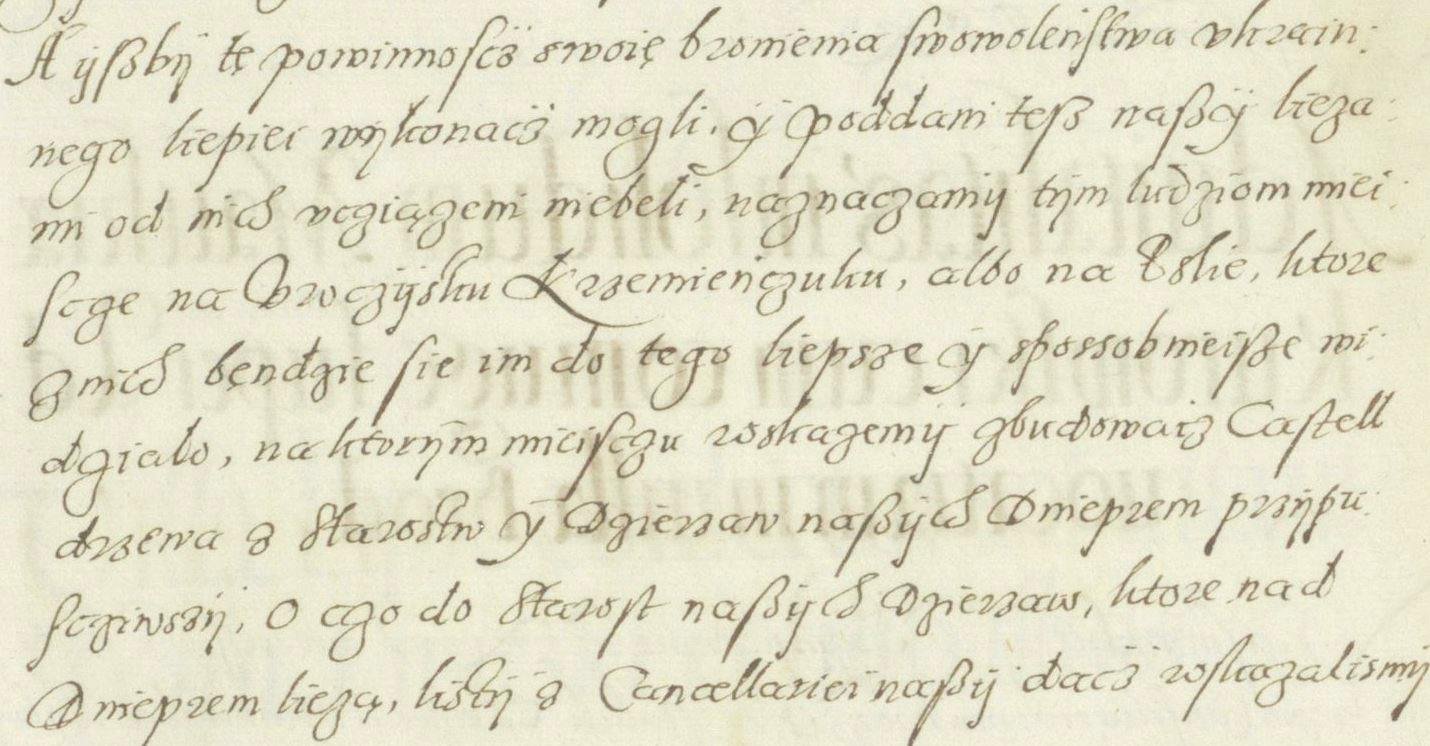 A yszby tę powinnoscż swoię bronienia swowolenstwa vkrain:
nego liepiei wykonacż mogli, ÿ poddani tesz naszy lieza:
mi od nich vcziązeni niebeli, naznaczamy tym ludziom miei:
scze na Vroczysku Krzemieńczuku, albo na Pslie, ktore
z nich bęndzie sie im do tego liepsze ÿ spossobnieisze wi:
dzialo, na ktorym mieisczu roskazemy zbudowacz Castell
drzewa z starostw ÿ Dzierzaw naszych Dnieprem przypu:
scziwszy, o czo do starost naszych Dzierzaw, ktore nad
Dnieprem liezą, listy z Cancellariei naszy dacż roskazalismy